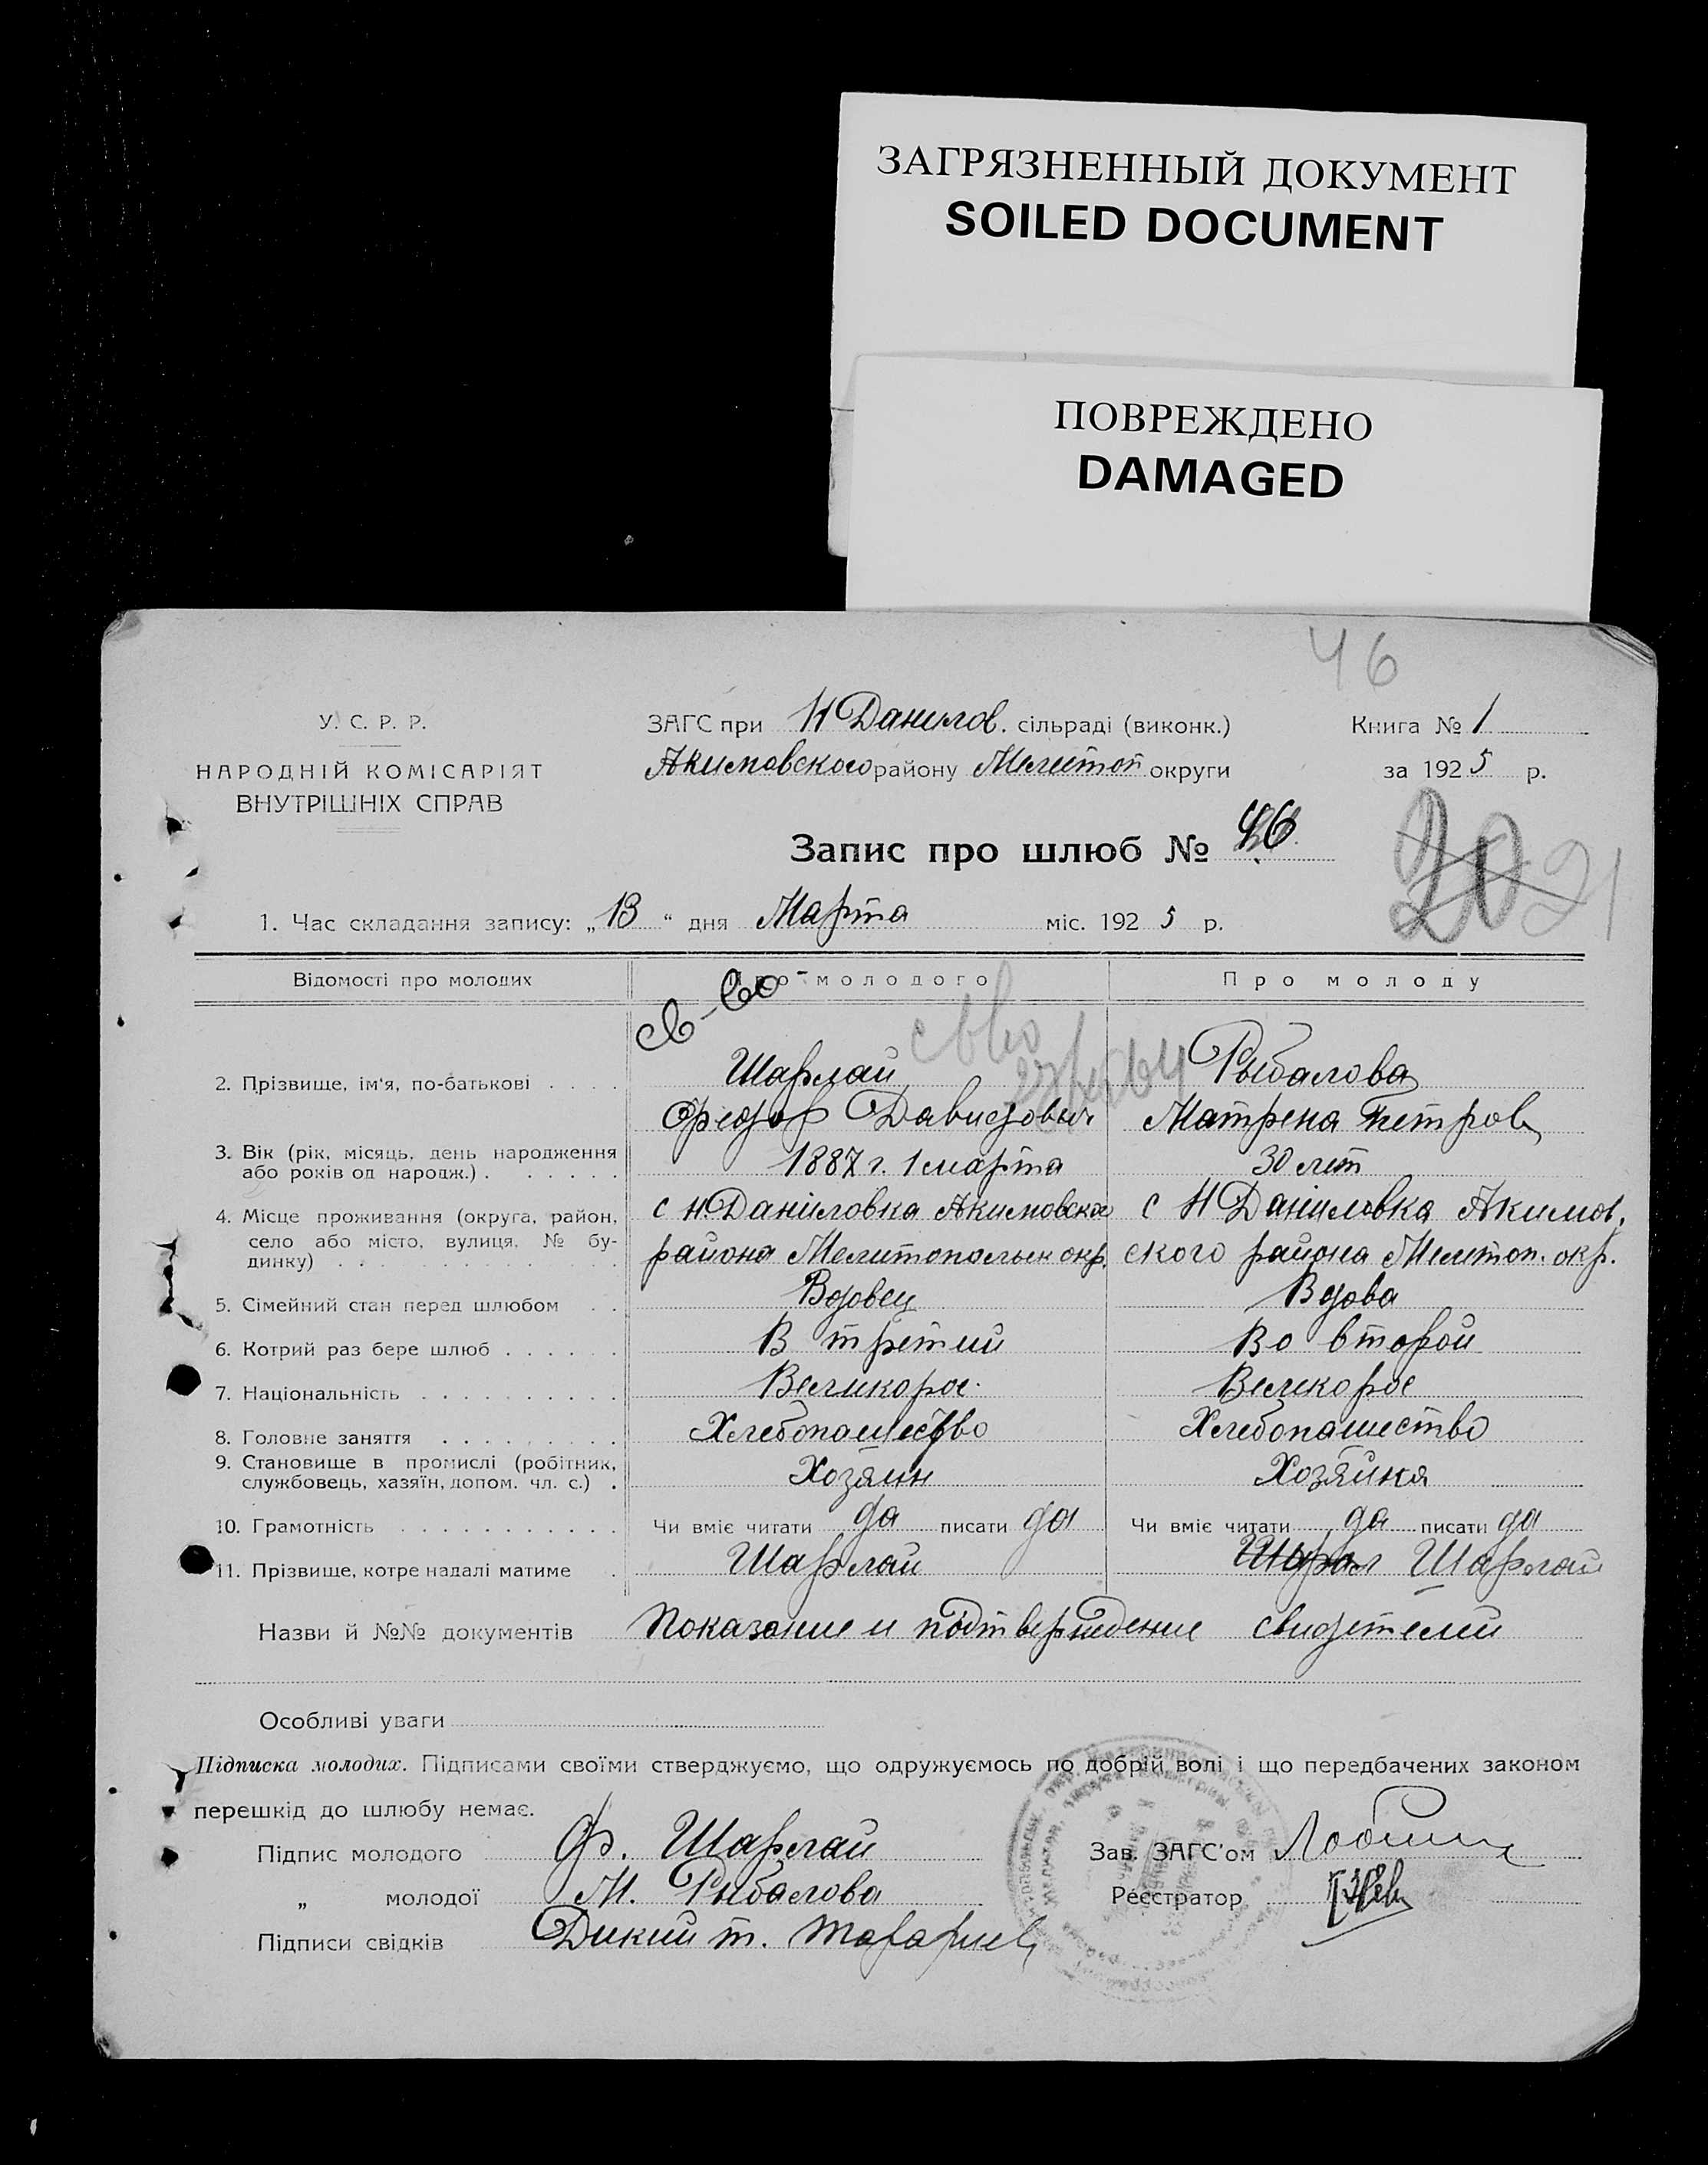 ЗАГРЯЗНЕННЫЙ ДОКУМЕНТ
SOILED DOCUMENT
ПОВРЕЖДЕНО
DAMAGED
46
У. С. Р. Р.
НАРОДНІЙ КОМІСАРІЯТ
ВНУТРІШНІХ СПРАВ
ЗАГС при Н Данилов. сільраді (виконк.)
Акимовского району Мелитоп округи
Книга № 1
за 1925 р.
Запис про шлюб № 46
20 21
1. Час складання запису: „13“ дня Марта міс. 1925 р.
Відомості про молодих Про молодого Про молоду
св-во
2. Прізвище, ім'я, по-батькові . . . . Шарлай Рыбалова
Федор Давидович Матрена Петров
3. Вік (рік, місяць, день народження
або років од народж.) . . . . . . 1887 г. 1 марта 30 лет
4. Місце проживання (округа, район, с Н.Даніловка Акимовско с Н Даніловка Акимов.
село або місто, вулиця, № бу-
динку) . . . . . . . . . . . . района Мелитопольск окр. ского района Мелитоп. окр.
5. Сімейний стан перед шлюбом . . Вдовец Вдова
6. Котрий раз бере шлюб . . . . . . В третий Во второй
7. Національність . . . . . . . . . . Великорос. Великорос
8. Головне заняття . . . . . . . . . Хлебопашество Хлебопашество
9. Становище в промислі (робітник,
службовець, хазяїн, допом. чл. с.) . Хозяин Хозяйка
10. Грамотність . . . . . . . . . . . Чи вміє читати да писати да Чи вміє читати да писати да
11. Прізвище, котре надалі матиме . Шарлай Шарлай
Назви й №№ документів Показание и подтверждение свидетелей
Особливі уваги
Підписка молодих. Підписами своїми стверджуємо, що одружуємось по добрій волі і що передбачених законом
перешкід до шлюбу немає.
Підпис молодого Ф. Шарлай Зав. ЗАГС'ом
„ молодої М. Рыбалова Реєстратор
Підписи свідків Дикий т.